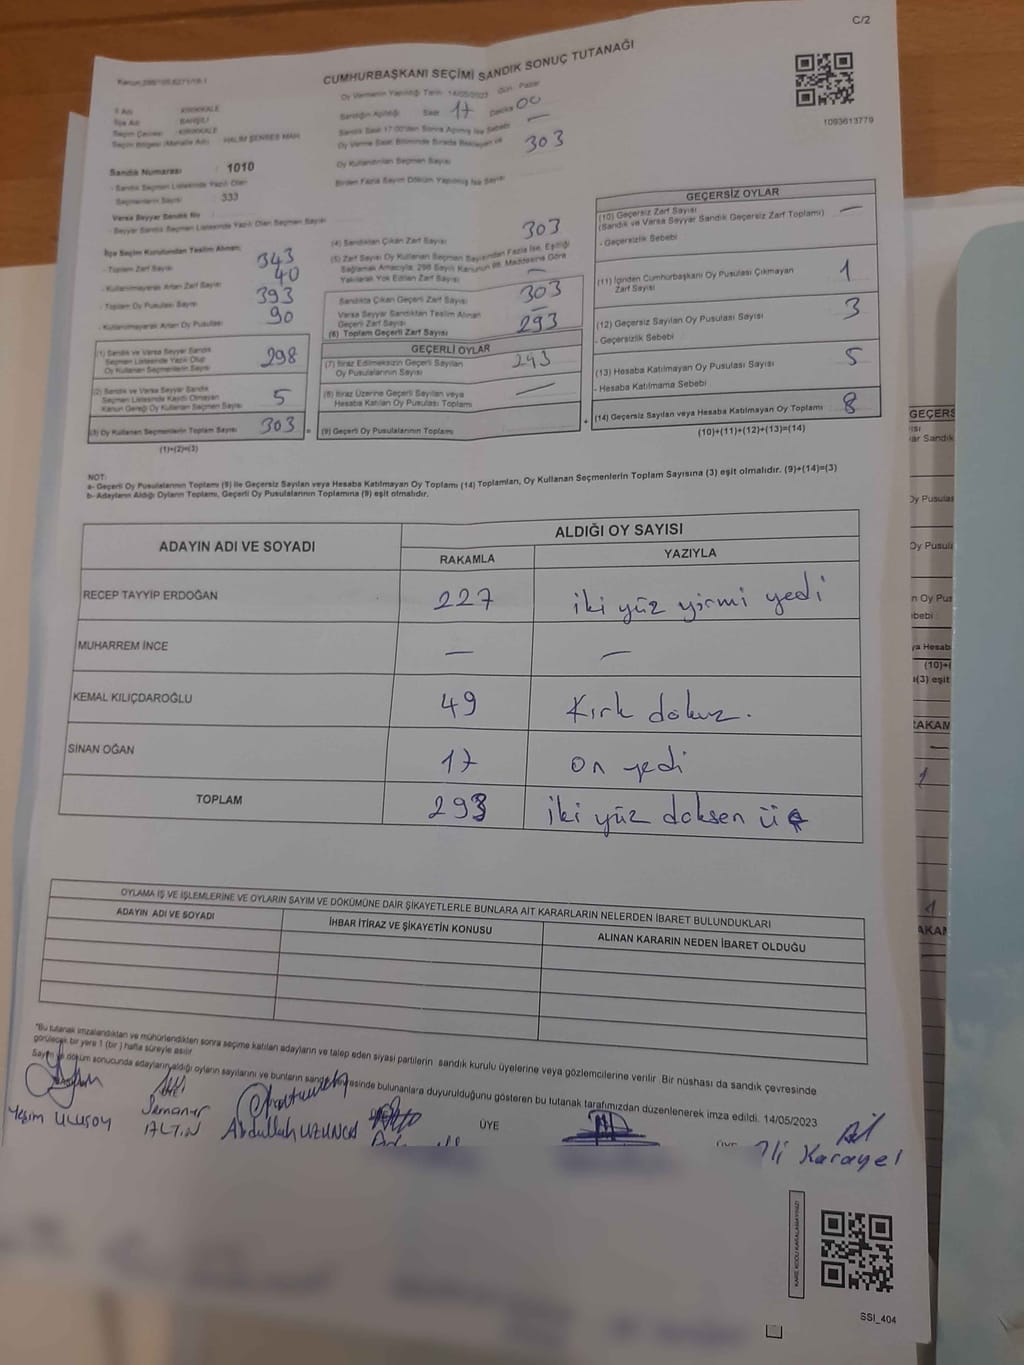 C/2
CUMHURBAŞKANI SEÇİMİ SANDIK SONUÇ TUTANAĞI
Oy Vermenin Yapıldığı Tarih : 14/05/2023 Gün : Pazar
Sandığın Açıldığı Saat 17 Dakika 00
Sandık Saat 17:00'den Sonra Açılmış İse Sebebi —
303
Oy Kullandırılan Seçmen Sayısı
Birden Fazla Sayım Döküm Yapılmış İse Sayısı
1093613779
İl Adı : KIRIKKALE
İlçe Adı : BAHŞİLİ
Seçim Çevresi : KIRIKKALE
Sandık Numarası : 1010
- Sandık Seçmen Listesinde Yazılı Olan
Seçmenlerin Sayısı : 333
Varsa Seyyar Sandık No
- Seyyar Sandık Seçmen Listesinde Yazılı Olan Seçmen Sayısı
İlçe Seçim Kurulundan Teslim Alınan;
- Toplam Zarf Sayısı 343
- Kullanılmayarak Artan Zarf Sayısı 40
- Toplam Oy Pusulası Sayısı 393
- Kullanılmayarak Artan Oy Pusulası 90
(1) Sandık ve Varsa Seyyar Sandık
Seçmen Listesinde Yazılı Olup
Oy Kullanan Seçmenlerin Sayısı 298
(2) Sandık ve Varsa Seyyar Sandık
Seçmen Listesinde Kaydı Olmayan
Kanun Gereği Oy Kullanan Seçmen Sayısı 5
(3) Oy Kullanan Seçmenlerin Toplam Sayısı 303 =
(1)+(2)=(3)
(4) Sandıktan Çıkan Zarf Sayısı 303
(5) Zarf Sayısı Oy Kullanan Seçmen Sayısından Fazla İse, Eşitliği
Sağlamak Amacıyla; 298 Sayılı Kanunun 98. Maddesine Göre
Yakılarak Yok Edilen Zarf Sayısı —
Sandıkta Çıkan Geçerli Zarf Sayısı 303
Varsa Seyyar Sandıktan Teslim Alınan
Geçerli Zarf Sayısı —
(6) Toplam Geçerli Zarf Sayısı 293
GEÇERLİ OYLAR
(7) İtiraz Edilmeksizin Geçerli Sayılan
Oy Pusulalarının Sayısı 293
(8) İtiraz Üzerine Geçerli Sayılan veya
Hesaba Katılan Oy Pusulası Toplamı —
(9) Geçerli Oy Pusulalarının Toplamı +
GEÇERSİZ OYLAR
(10) Geçersiz Zarf Sayısı —
(Sandık ve Varsa Seyyar Sandık Geçersiz Zarf Toplamı)
- Geçersizlik Sebebi
(11) İçinden Cumhurbaşkanı Oy Pusulası Çıkmayan
Zarf Sayısı 1
(12) Geçersiz Sayılan Oy Pusulası Sayısı 3
- Geçersizlik Sebebi
(13) Hesaba Katılmayan Oy Pusulası Sayısı 5
- Hesaba Katılmama Sebebi
(14) Geçersiz Sayılan veya Hesaba Katılmayan Oy Toplamı 8
(10)+(11)+(12)+(13)=(14)
NOT:
a- Geçerli Oy Pusulalarının Toplamı (9) ile Geçersiz Sayılan veya Hesaba Katılmayan Oy Toplamı (14) Toplamları, Oy Kullanan Seçmenlerin Toplam Sayısına (3) eşit olmalıdır. (9)+(14)=(3)
b- Adayların Aldığı Oyların Toplamı, Geçerli Oy Pusulalarının Toplamına (9) eşit olmalıdır.
ADAYIN ADI VE SOYADI
ALDIĞI OY SAYISI
RAKAMLA YAZIYLA
RECEP TAYYİP ERDOĞAN 227 iki yüz yirmi yedi
MUHARREM İNCE — —
KEMAL KILIÇDAROĞLU 49 Kırk dokuz.
SİNAN OĞAN 17 on yedi
TOPLAM 293 iki yüz doksen üç
OYLAMA İŞ VE İŞLEMLERİNE VE OYLARIN SAYIM VE DÖKÜMÜNE DAİR ŞİKAYETLERLE BUNLARA AİT KARARLARIN NELERDEN İBARET BULUNDUKLARI
ADAYIN ADI VE SOYADI İHBAR İTİRAZ VE ŞİKAYETİN KONUSU ALINAN KARARIN NEDEN İBARET OLDUĞU
"Bu tutanak imzalandıktan ve mühürlendikten sonra seçime katılan adayların ve talep eden siyasi partilerin sandık kurulu üyelerine veya gözlemcilerine verilir. Bir nüshası da sandık çevresinde
görülecek bir yere 1 (bir) hafta süreyle asılır.
Sayım ve döküm sonucunda adayların aldığı oyların sayılarını ve bunların sandık çevresinde bulunanlara duyurulduğunu gösteren bu tutanak tarafımızdan düzenlenerek imza edildi. 14/05/2023
Yeşim ULUSOY
Abdullah UZUNCA
ÜYE
Ali Karayel
SSI_404